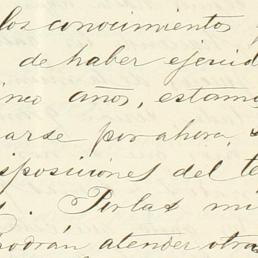 los conocimientos
de haber ejercid
inco años, estamo
arse por ahora, s
isposiciones del te
Por las mi
podrán atender otras